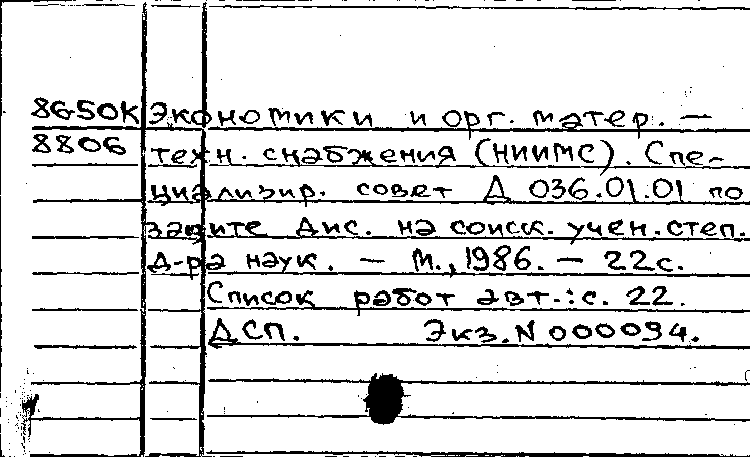 8G50K Экономики и орг. матер. —
8806 техн. снабжения (НИИМС). Спе-
циализир. совет Д 036.01.01 по
защите дис. на соиск. учен. степ.
д-ра наук. — М., 1986. — 22с.
Список работ авт.: с. 22.
ДСП. Экз. N 000094.